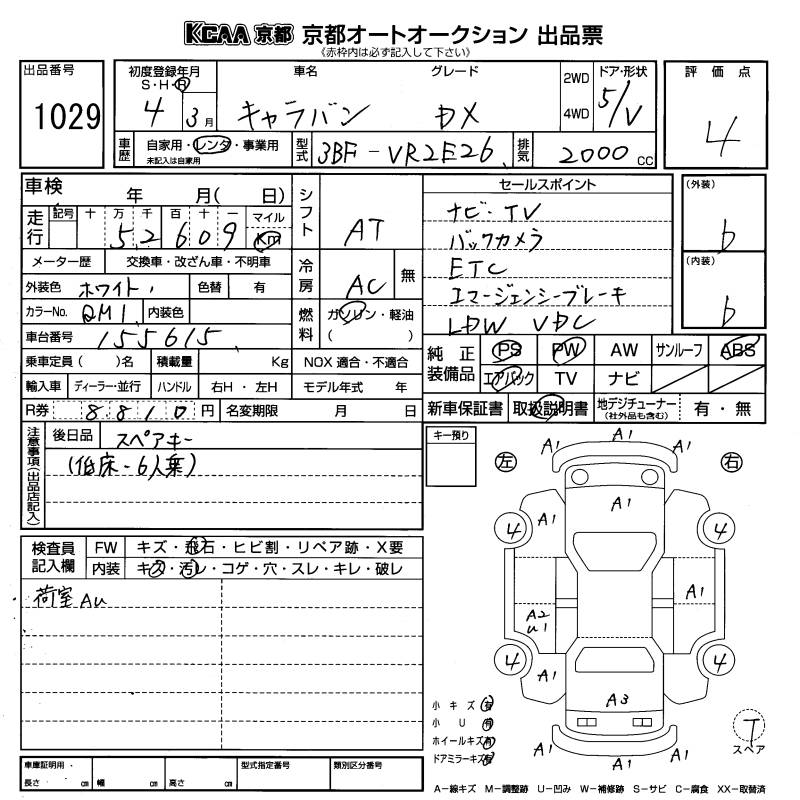 KCAA 京都 京都オートオークション 出品票
《赤枠内は必ず記入して下さい》
出品番号
1029
初度登録年月
S・H・R
4 3月
車名
キャラバン
グレード
DX
2WD
4WD
ドア・形状
5/V
評価点
4
車歴
自家用・レンタ・事業用
未記入は自家用
型式
3BF-VR2E26
排気
2000cc
車検 年 月( 日)
走行
記号 十 万 千 百 十 一
52609
マイル
Km
シフト
AT
セールスポイント
ナビ・TV
バックカメラ
ETC
エマージェンシーブレーキ
LDW VDC
(外装)
b
(内装)
b
メーター歴 交換車・改ざん車・不明車
冷房
AC
無
外装色 ホワイト 色替 有
カラーNo. QM1 内装色
燃料
ガソリン・軽油
( )
車台番号 155615
乗車定員( )名 積載量 Kg NOX 適合・不適合
輸入車 ディーラー・並行 ハンドル 右H・左H モデル年式 年
R券 8810円 名変期限 月 日
純正装備品
PS PW AW サンルーフ ABS
エアバック TV ナビ
新車保証書 取扱説明書 地デジチューナー(社外品も含む) 有・無
注意事項(出品店記入)
後日品 スペアキー
(低床-6人乗)
キー預り
検査員記入欄
FW キズ・飛石・ヒビ割・リペア跡・X要
内装 キズ・汚レ・コゲ・穴・スレ・キレ・破レ
荷室 AU
左 右
A1 A1 A1
A1
4 A1 4
A1
A2
U1
4 A1 4
A3
A1 A1 A1
小キズ 有
小U 有
ホイールキズ 有
ドアミラーキズ 有
T
スペア
車庫証明用・長さ cm 幅 cm 高さ cm
型式指定番号
類別区分番号
A−線キズ M−調整跡 U−凹み W−補修跡 S−サビ C−腐食 XX−取替済